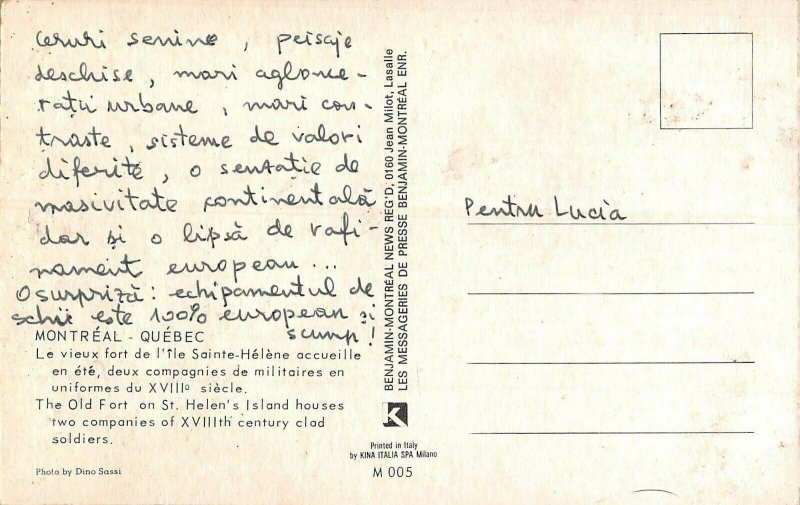 Ceruri senine, peisaje
deschise, mari aglome-
rații urbane, mari con-
traste, sisteme de valori
diferite, o senzație de
masivitate continentală
dar și o lipsă de rafi-
nament european...
O surpriză: echipamentul de
schi este 100% european și
scump!
MONTRÉAL - QUÉBEC
Le vieux fort de l'île Sainte-Hélène accueille
en été, deux compagnies de militaires en
uniformes du XVIIIo siècle.
The Old Fort on St. Helen's Island houses
two companies of XVIIIth century clad
soldiers.
Photo by Dino Sassi
BENJAMIN-MONTRÉAL NEWS REG'D, 0160 Jean Milot, Lasalle
LES MESSAGERIES DE PRESSE BENJAMIN-MONTRÉAL ENR.
K
Printed in Italy
by KINA ITALIA SPA Milano
M 005
Pentru Lucia